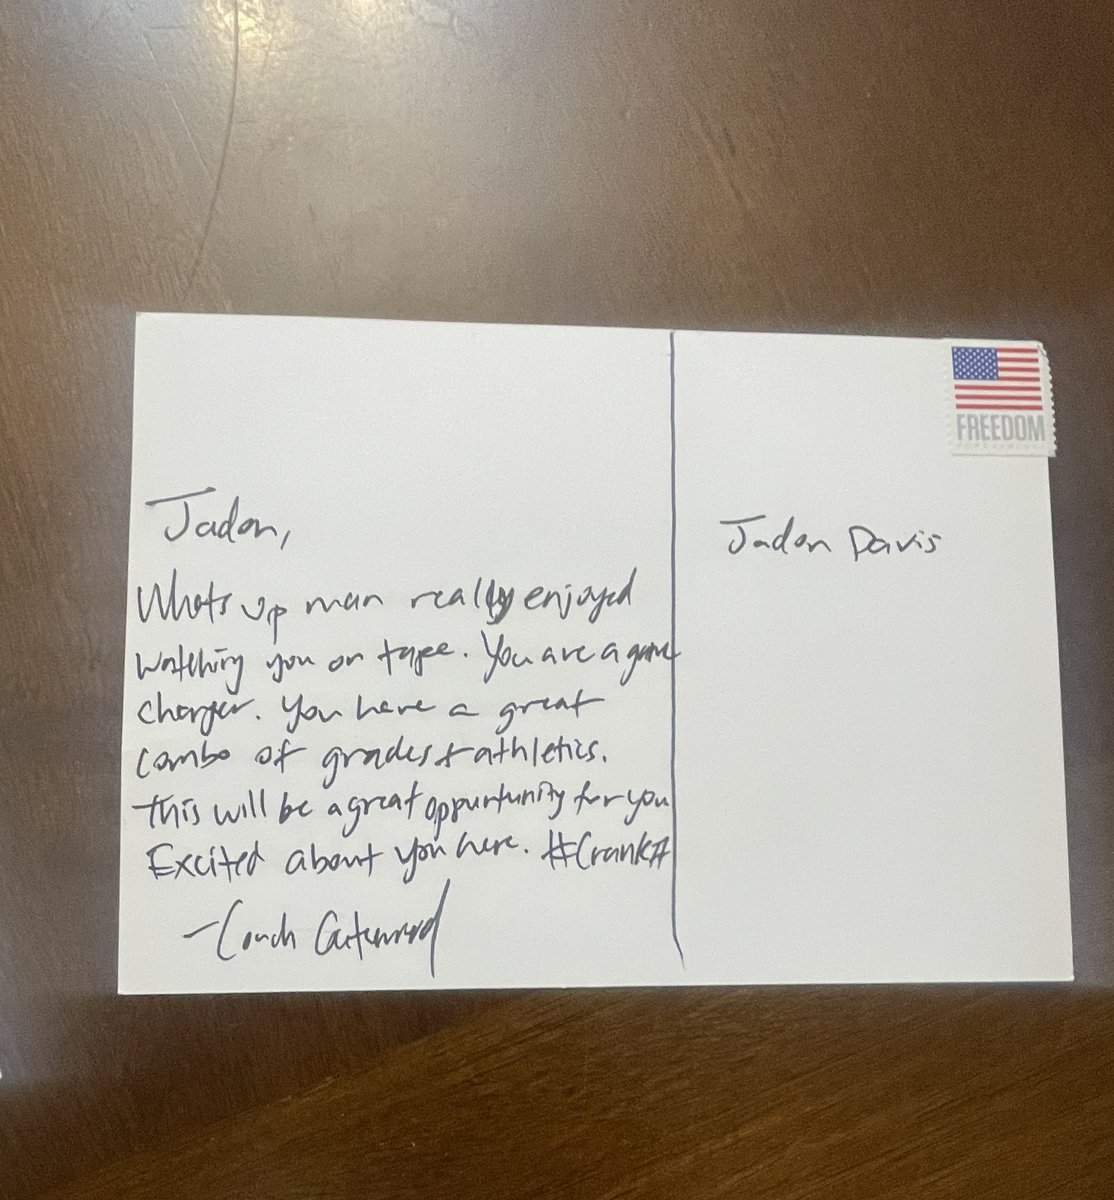 Jadon,
Whats up man really enjoyed
watching you on tape. You are a game
changer. You have a great
combo of grades & athletics.
This will be a great oppurtunity for you
Excited about you here. #CrankIt
-Coach Gatewood
Jadon Davis
FREEDOM